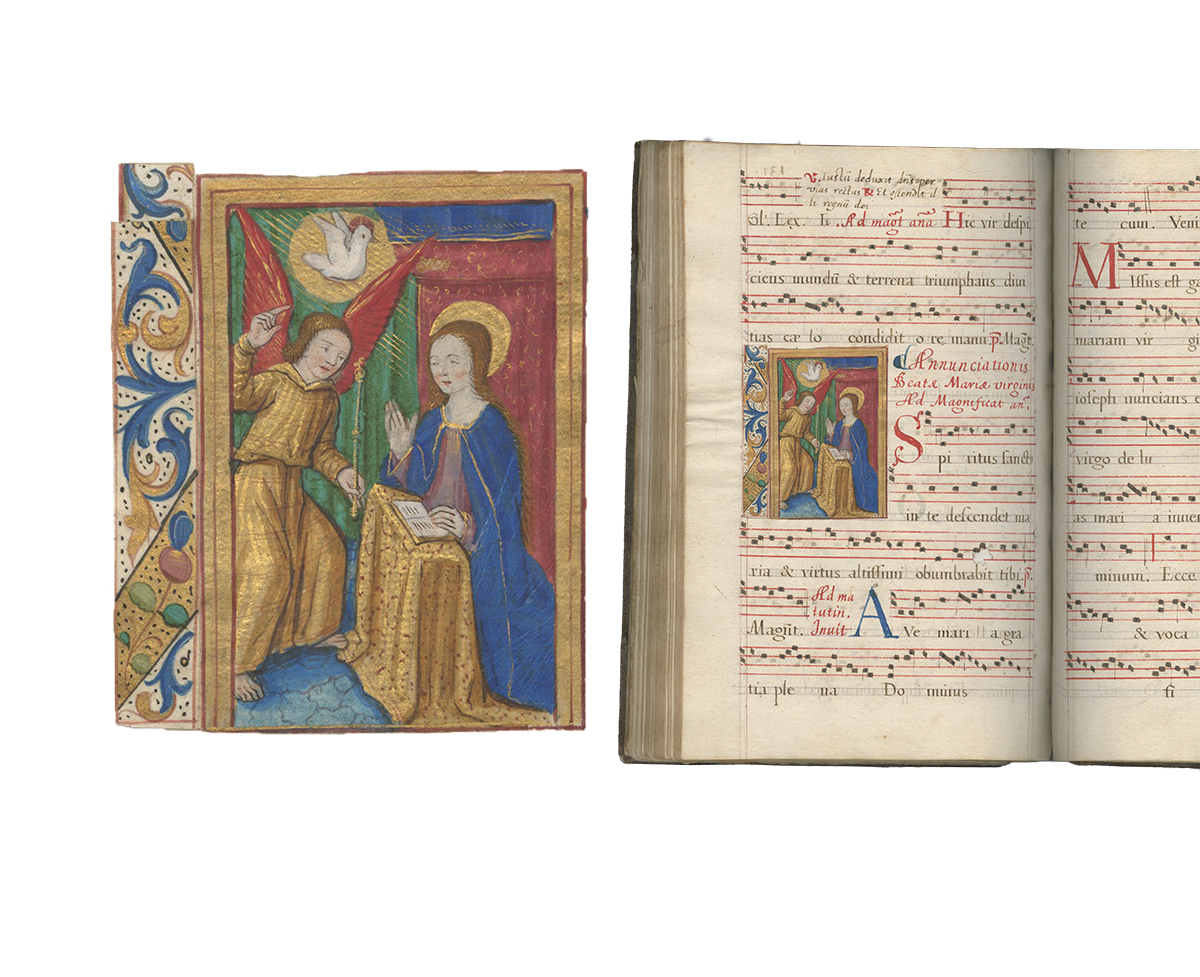 ℣. Iustū deduxit dn̄s per
vias rectas ℟. Et ostendit il
li regnū dei
Ad mag̃t anã Hic vir despi
ciens mundū & terrena triumphans divi
tias cæ lo condidit o re manu p. Mag̃t.
Annunciationis
Beatæ Mariæ virginis
Ad Magnificat añ.
Spi ritus sanctꝰ
in te descendet ma
ria & virtus altissimi obumbrabit tibi p.
Magn̄t.
Ad ma
tutin.
Invit
Ave mari a gra
tia ple na Do minus
te cum. Veni
Missus est ga
mariam vir gi
ioseph nuncians e
virgo de lu
as mari a inven
minum. Ecce
& voca
fi